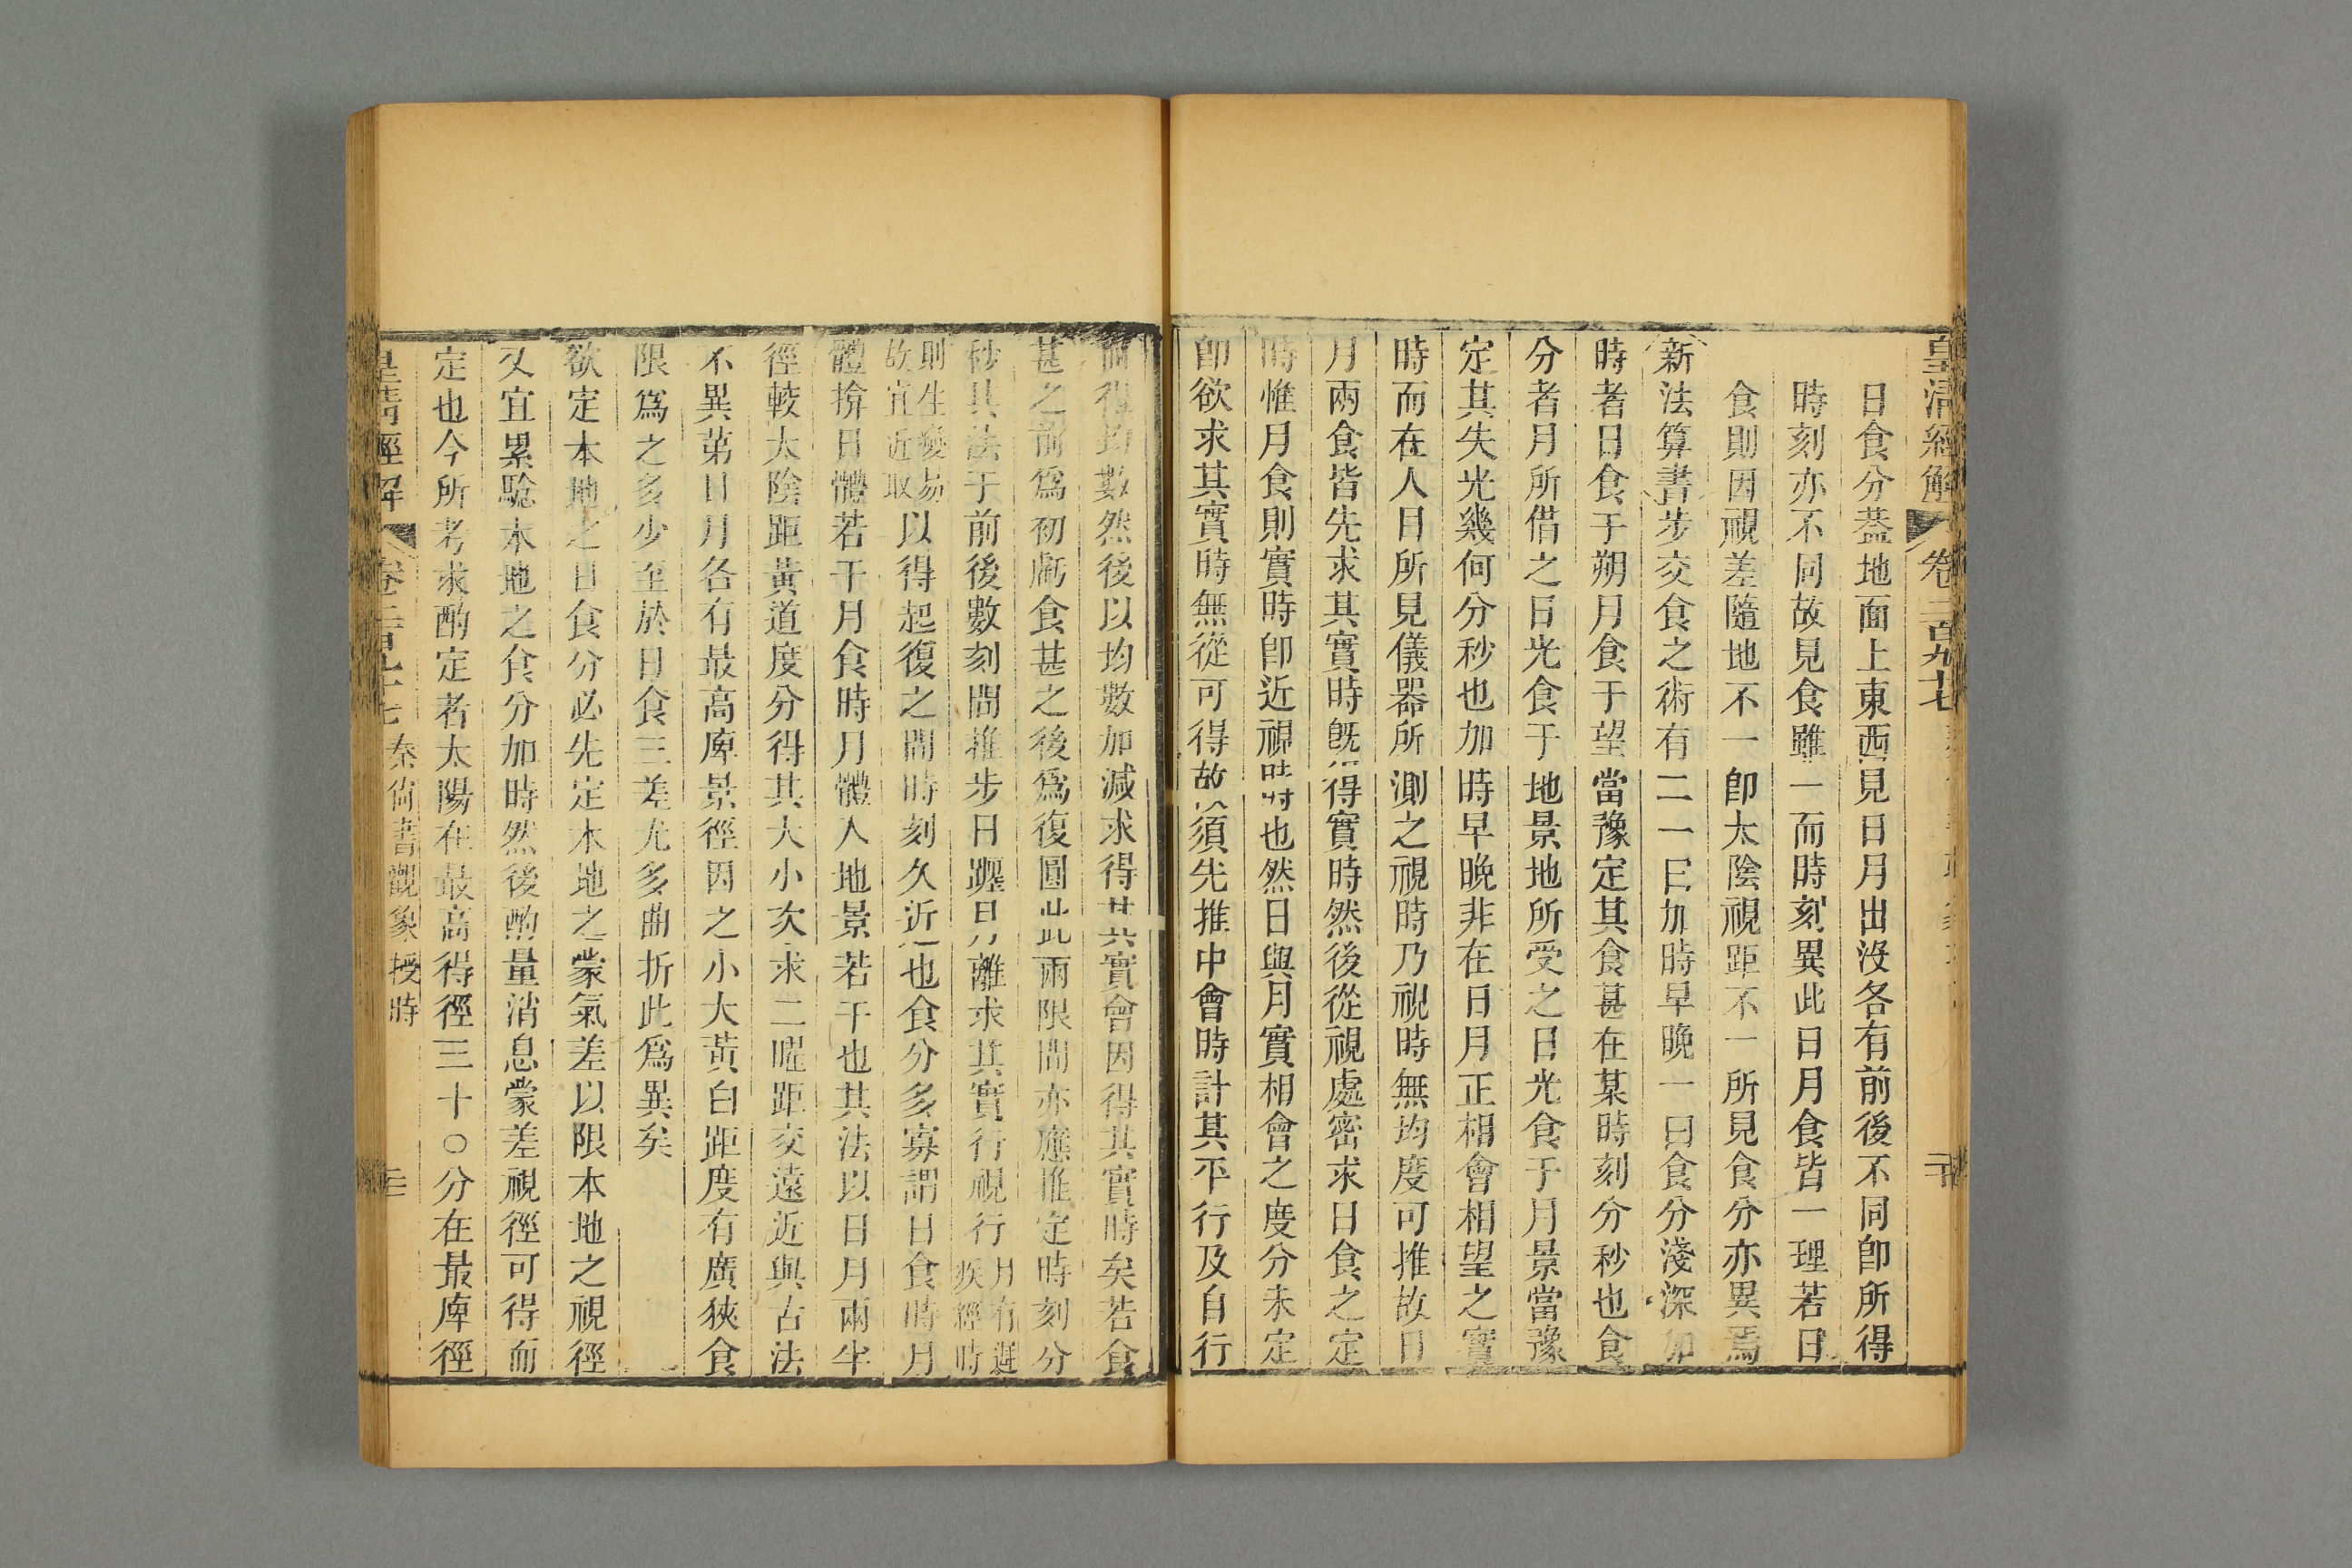 皇清經解 卷二百九十七
日食分葢地面上東西見日月出沒各有前後不同卽所得
時刻亦不同故見食雖一而時刻異此日月食皆一理若日
食則因視差隨地不一卽太陰視距不一所見食分亦異焉
新法算書步交食之術有二一曰加時早晚一曰食分淺深加
時者日食于朔月食于望當豫定其食甚在某時刻分秒也食
分者月所借之日光食于地景地所受之日光食于月景當豫
定其失光幾何分秒也加時早晚非在日月正相會相望之實
時而在人目所見儀器所測之視時乃視時無均度可推故日
月兩食皆先求其實時旣得實時然後從視處密求日食之定
時惟月食則實時卽近視時也然日與月實相會之度分未定
卽欲求其實時無從可得故須先推中會時計其平行及自行
而得均數然後以均數加減求得其實會因得其實時矣若食
甚之前爲初虧食甚之後爲復圓此兩限間亦應推定時刻分
秒其法于前後數刻間推步日躔月離求其實行視行月有遲疾經時
則生變易故宜近取以得起復之間時刻久近也食分多寡謂日食時月
體揜日體若干月食時月體入地景若干也其法以日月兩半
徑較太陰距黃道度分得其大小次求二曜距交遠近與古法
不異第日月各有最高庳景徑因之小大黃白距度有廣狹食
限爲之多少至於日食三差尤多曲折此爲異矣
欲定本地之日食分必先定本地之蒙氣差以限本地之視徑
又宜累驗本地之食分加時然後酌量消息蒙差視徑可得而
定也今所考求酌定者太陽在最高得徑三十〇分在最庳徑
皇清經解 卷二百九十七 秦尙書觀象授時